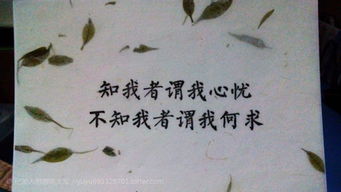 知我者谓我心忧
不知我者谓我何求